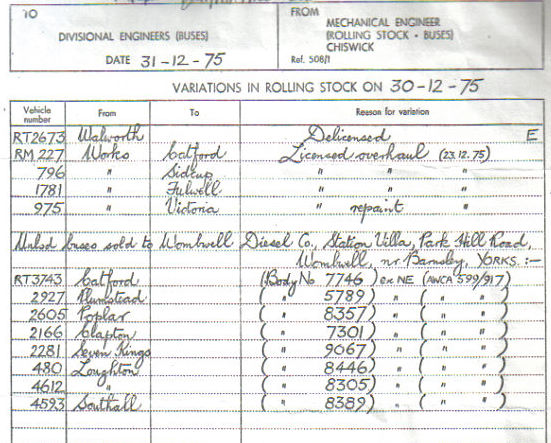 TO
DIVISIONAL ENGINEERS (BUSES)
DATE 31-12-75
FROM
MECHANICAL ENGINEER
(ROLLING STOCK - BUSES)
CHISWICK
Ref. 508/1
VARIATIONS IN ROLLING STOCK ON 30-12-75
Vehicle number From To Reason for variation
RT2673 Walworth Delicensed E
RM 227 Works Catford Licensed overhaul (23.12.75)
796 " Sidcup " " "
1781 " Fulwell " " "
975 " Victoria " repaint "
Unlsd buses sold to Wombwell Diesel Co., Station Villa, Park Hill Road,
Wombwell, nr Barnsley, YORKS. :-
RT3743 Catford (Body No 7746) ex NE (AWCA 599/917)
2927 Plumstead ( " 5789) " ( " " )
2605 Poplar ( " 8357) " ( " " )
2166 Clapton ( " 7301) " ( " " )
2281 Seven Kings ( " 9067) " ( " " )
480 Loughton ( " 8446) " ( " " )
4612 " ( " 8305) " ( " " )
4593 Southall ( " 8389) " ( " " )